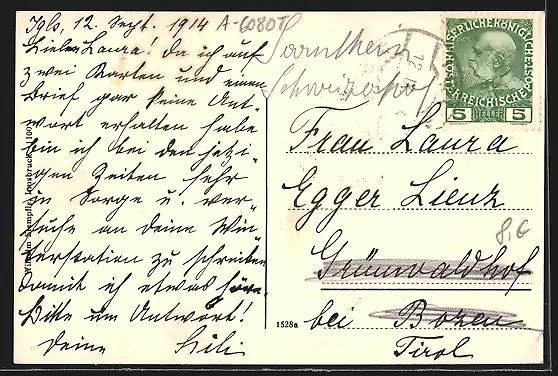 Igls, 12. Sept. 1914
A-6080T
Liebe Laura! Da ich auf
zwei Karten und einen
Brief gar keine Ant-
wort erhalten habe
bin ich bei den jetzi-
gen Zeiten sehr
in Sorge u. ver-
suche an deine Win-
terstation zu schreiben
damit ich etwas höre.
Bitte um Antwort!
Deine Lili
Wilhelm Stempfle, Innsbruck
Sarnthein
Schweizerhof
KAISERLICHE KÖNIGLICHE ÖSTERREICHISCHE POST
5 HELLER 5
Frau Laura
Egger Lienz
8,€
Grünwaldhof
bei Bozen
Tirol
1528a